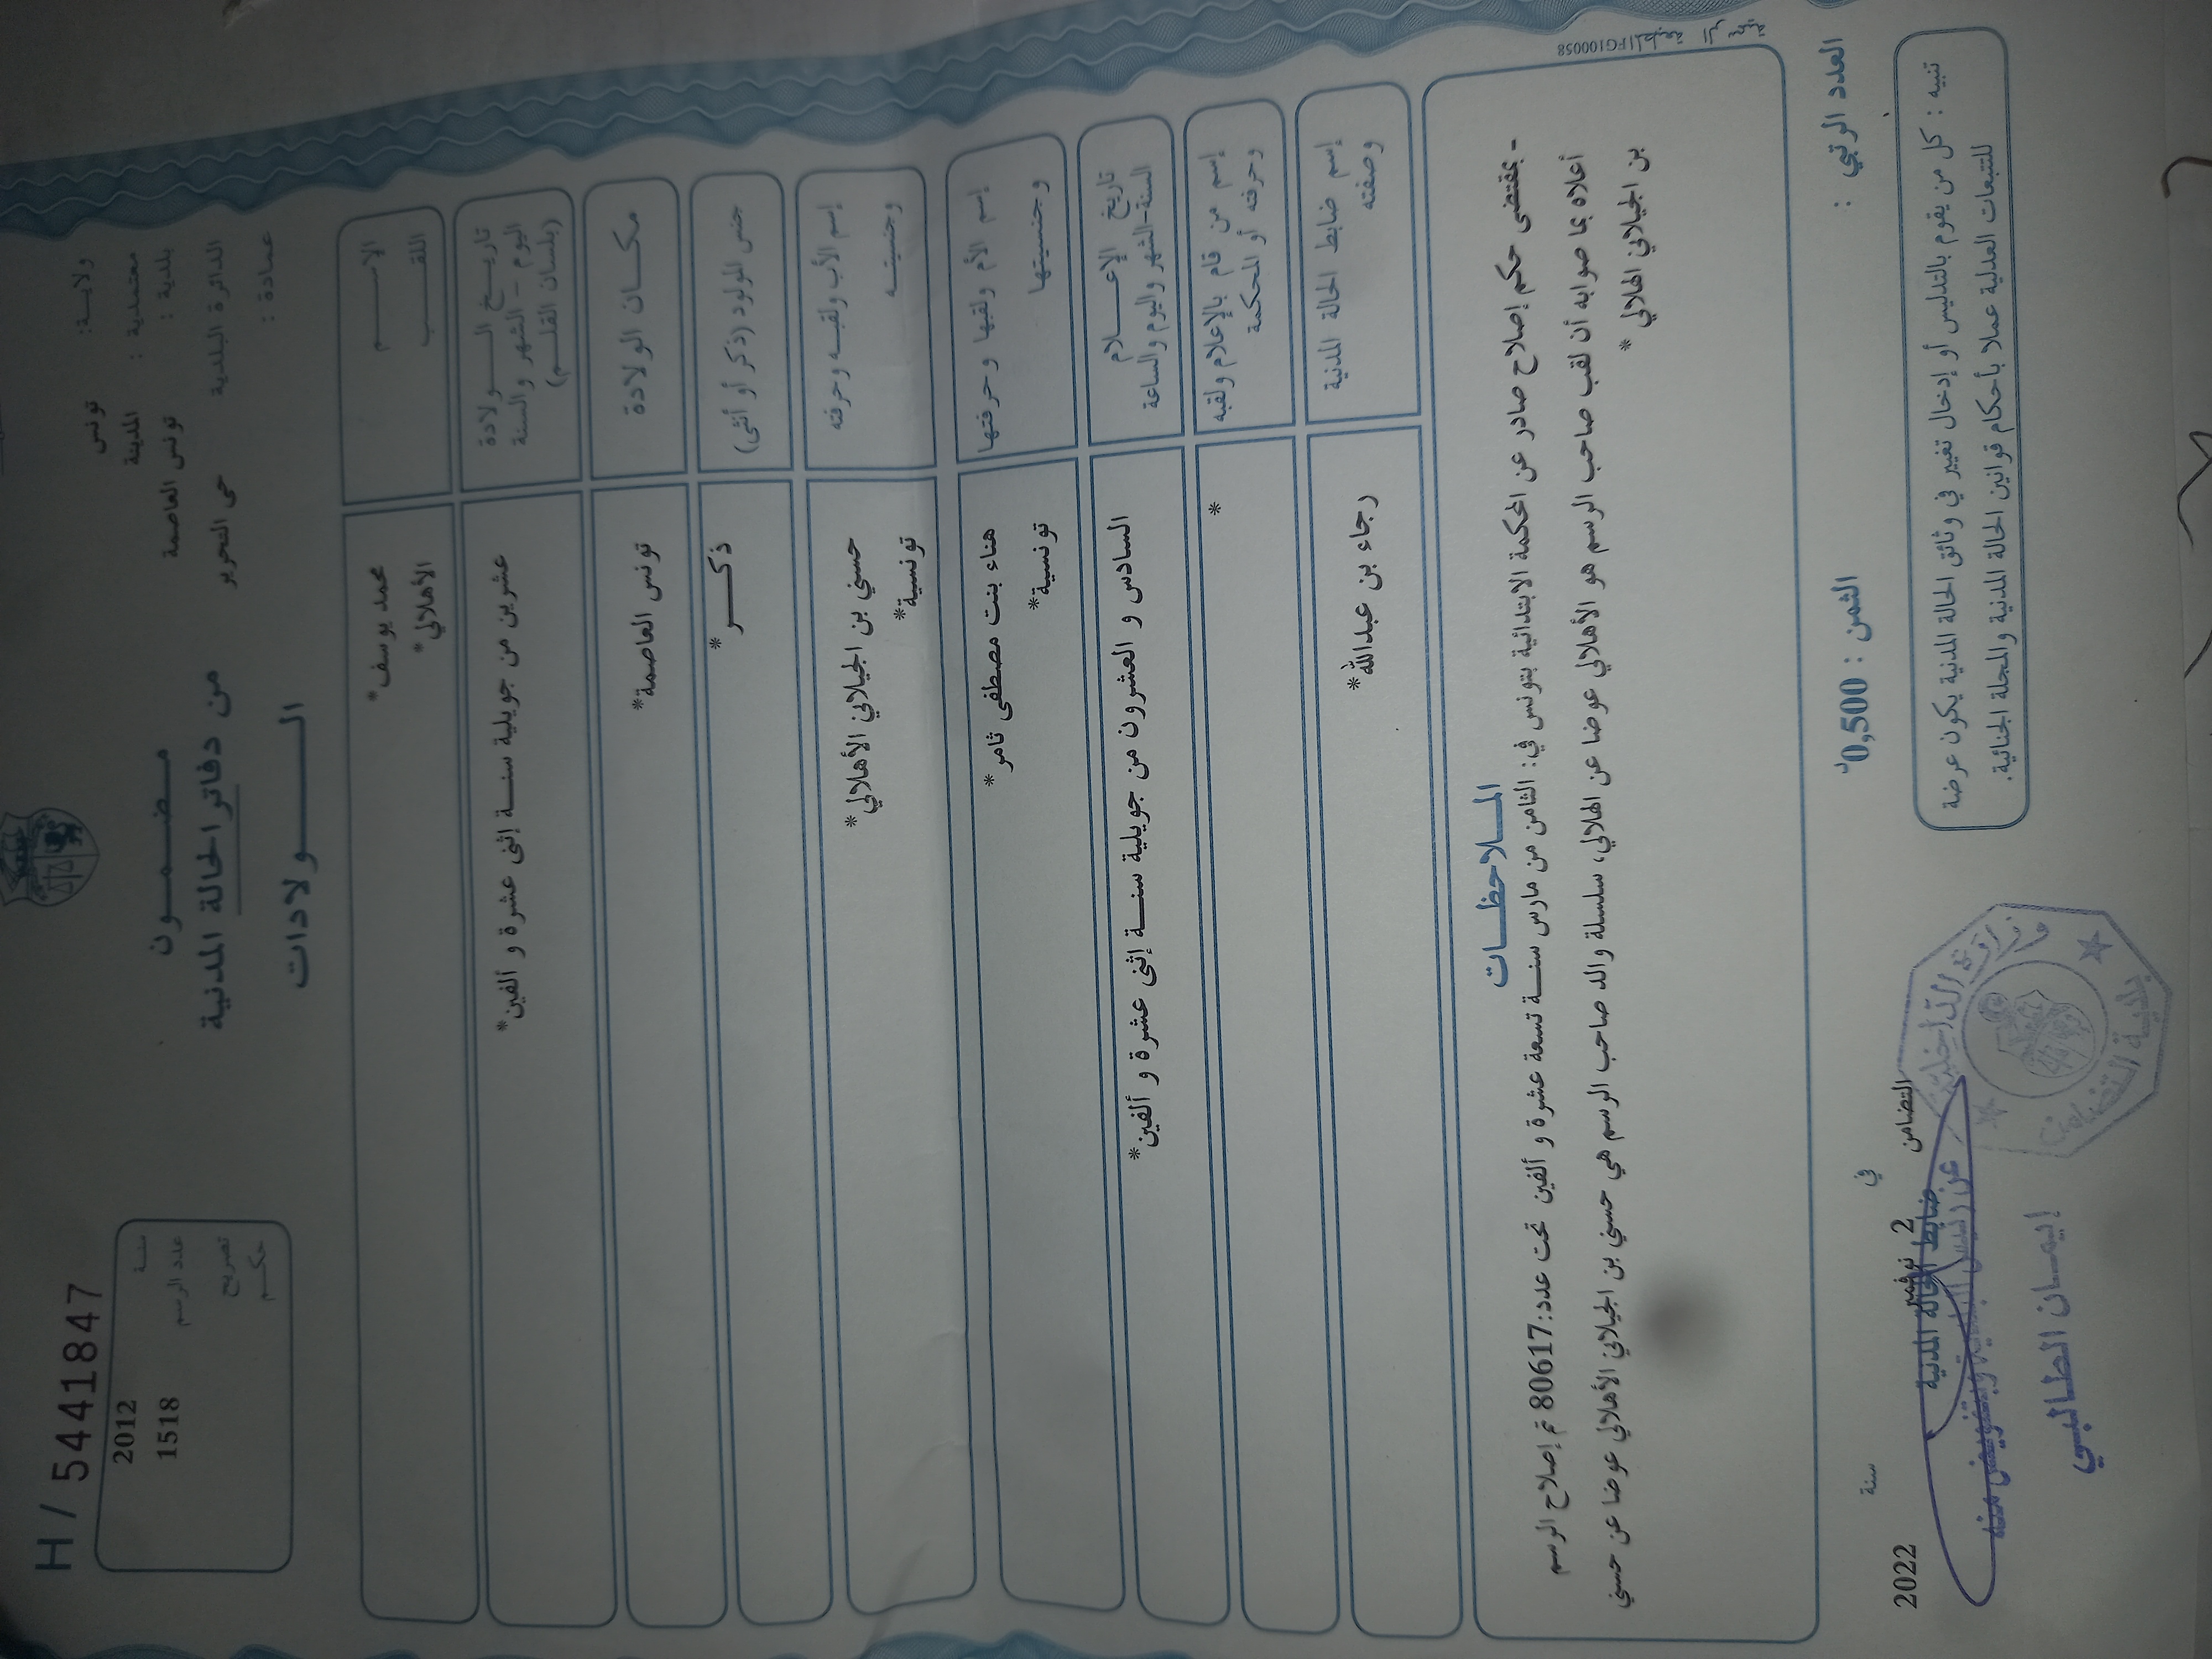 H / 5441847
سنة 2012
عدد الرسم 1518
تصريح
حكم
ولاية: تونس
بلدية :
معتمدية : المدينة
تونس العاصمة
الدائرة البلدية حي التحرير
عمادة :
مضمون
من دفاتر الحالة المدنية
الولادات
الاسم محمد يوسف*
اللقب الأهلالي*
تاريخ الولادة
اليوم - الشهر والسنة
(بلسان القلم)
عشرين من جويلية سنة إثنى عشرة و ألفين*
مكان الولادة تونس العاصمة*
جنس المولود (ذكر أو أنثى) ذكر*
إسم الأب ولقبه وحرفته حسني بن الجيلاني الأهلالي*
وجنسيته تونسية*
إسم الأم ولقبها وحرفتها هناء بنت مصطفى ثامر*
وجنسيتها تونسية*
تاريخ الإعلام
السنة-الشهر واليوم والساعة
السادس و العشرون من جويلية سنة إثنى عشرة و ألفين*
إسم من قام بالإعلام ولقبه *
وحرفته أو المحكمة
إسم ضابط الحالة المدنية رجاء بن عبدالله*
وصفته
الملاحظات
- بمقتضى حكم إصلاح صادر عن المحكمة الابتدائية بتونس في: الثامن من مارس سنة تسعة عشرة و ألفين تحت عدد:80617 تم إصلاح الرسم
أعلاه بما صوابه أن لقب صاحب الرسم هو الأهلالي عوضا عن الهلالي، سلسلة والد صاحب الرسم هي حسني بن الجيلاني الأهلالي عوضا عن حسني
بن الجيلاني الهلالي*
العدد الرتبي :
الثمن : 0,500د
في سنة
التضامن 2 نوفمبر 2022
ضابط الحالة المدنية
عن رئيس البلدية وبتفويض منه
إيمان الطالبي
بلدية التضامن
تنبيه : كل من يقوم بالتدليس أو إدخال تغيير في وثائق الحالة المدنية يكون عرضة
للتتبعات العدلية عملا بأحكام قوانين الحالة المدنية والمجلة الجنائية.